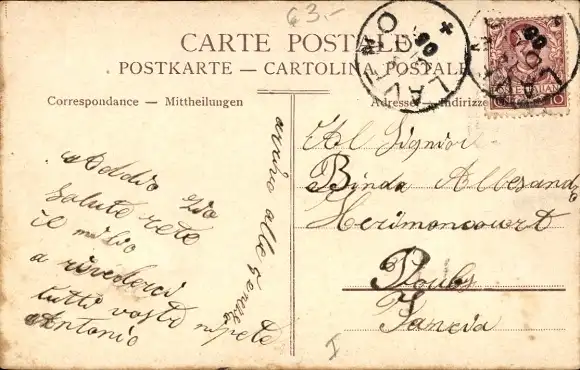 63.-
CARTE POSTALE
POSTKARTE — CARTOLINA POSTALE
Correspondance — Mittheilungen
Adresse — Indirizzo
LAVENO
Addio Zio
Salute rete
il mi Zio
a rivederci
tutti vostri nipote
Antonio
arrivo alle
Al Signior
Binda Allesand
Herimoncourt
Doubs
Francia
I